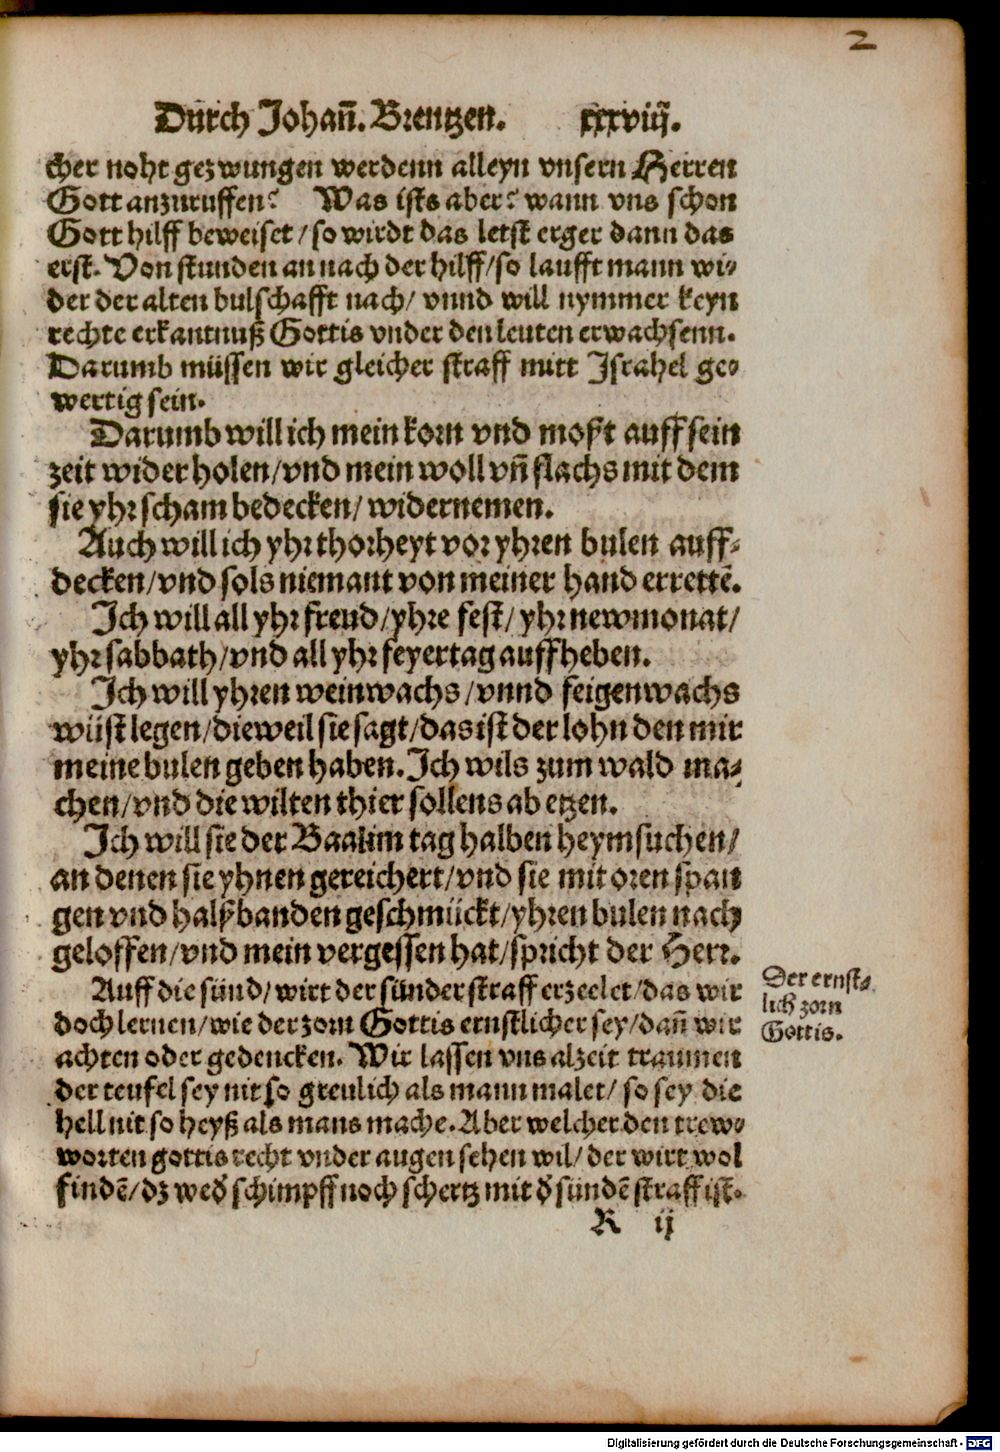 2
Durch Johañ. Brentzen. xxxviij.
cher noht gezwungen werdenn alleyn vnsern Herren
Gott anzuruffen? Was ists aber? wann vns schon
Gott hilff beweiset/so wirdt das letst erger dann das
erst. Von stunden an nach der hilff/so laufft mann wi-
der der alten bulschafft nach/ vnnd will nymmer keyn
rechte erkantnuß Gottis vnder den leuten erwachsenn.
Darumb müssen wir gleicher straff mitt Israhel ge-
wertig sein.
Darumb will ich mein korn vnd most auff sein
zeit wider holen/vnd mein woll vñ flachs mit dem
sie yhr scham bedecken/ widernemen.
Auch will ich yhr thorheyt vor yhren bulen auff-
decken/vnd sols niemant von meiner hand errettẽ.
Ich will all yhr freud/yhre fest/ yhr newmonat/
yhr sabbath/vnd all yhr feyertag auffheben.
Ich will yhren weinwachs/vnnd feigenwachs
wüst legen/dieweil sie sagt/das ist der lohn den mir
meine bulen geben haben. Ich wils zum wald ma-
chen/vnd die wilten thier sollens ab etzen.
Ich will sie der Baalim tag halben heymsuchen/
an denen sie yhnen gereichert/vnd sie mit oren span
gen vnd halßbanden geschmückt/yhren bulen nach
geloffen/vnd mein vergessen hat/spricht der Herr.
Auff die sünd/ wirt der sünder straff erzeelet/das wir
doch lernen/wie der zorn Gottis ernstlicher sey/dañ wir
achten oder gedencken. Wir lassen vns alzeit traumen
der teufel sey nit so greulich als mann malet/ so sey die
hell nit so heyß als mans mache. Aber welcher den trew-
worten gottis recht vnder augen sehen wil/ der wirt wol
findẽ/dz wed̕ schimpff noch schertz mit d̕ sündẽ straff ist.
Der ernst-
lich zorn
Gottis.
K ij
Digitalisierung gefördert durch die Deutsche Forschungsgemeinschaft - DFG